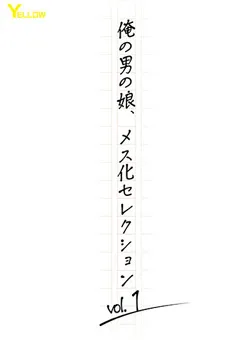 YELLOW
俺の男の娘、メス化セレクション
vol.1